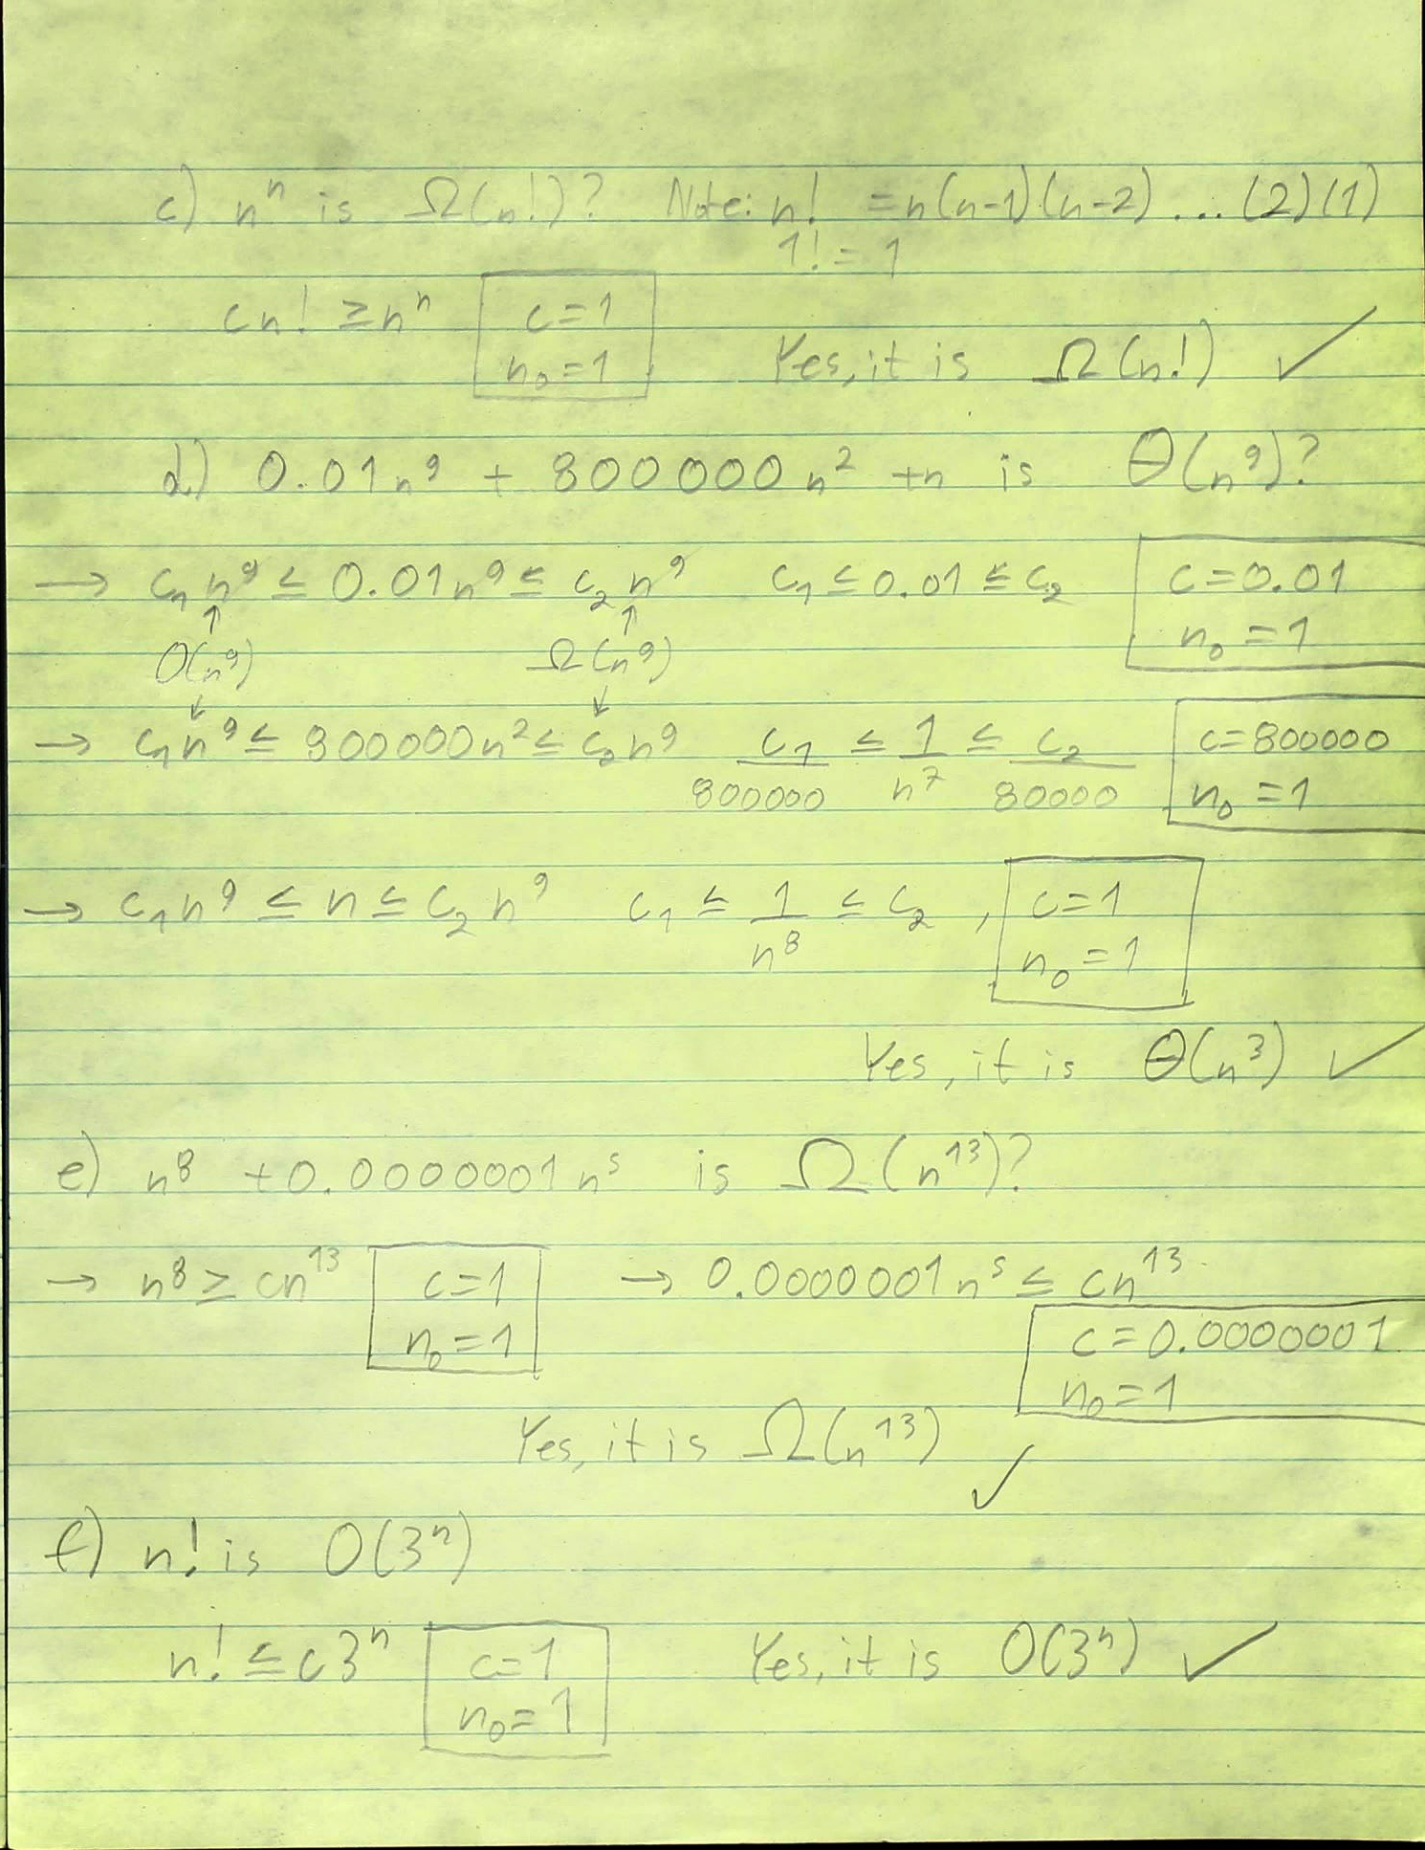 c) nⁿ is Ω(n!)? Note: n! = n(n-1)(n-2)...(2)(1)
1! = 1
cn! ≥ nⁿ c=1
n₀=1
Yes, it is Ω(n!) ✓
d.) 0.01n⁹ + 800000n² +n is Θ(n⁹)?
→ c₁n⁹ ≤ 0.01n⁹ ≤ c₂n⁹ c₁ ≤ 0.01 ≤ c₂ c=0.01
n₀=1
↑ ↑
O(n⁹) Ω(n⁹)
↓ ↓
→ c₁n⁹ ≤ 800000n² ≤ c₂n⁹ c₁/800000 ≤ 1/n⁷ ≤ c₂/80000 c=800000
n₀=1
→ c₁n⁹ ≤ n ≤ c₂n⁹ c₁ ≤ 1/n⁸ ≤ c₂, c=1
n₀=1
Yes, it is Θ(n³) ✓
e) n⁸ +0.0000001n⁵ is Ω(n¹³)?
→ n⁸ ≥ cn¹³ c=1
n₀=1
→ 0.0000001n⁵ ≤ cn¹³
c=0.0000001
n₀=1
Yes, it is Ω(n¹³)
✓
f) n! is O(3ⁿ)
n! ≤ c3ⁿ c=1
n₀=1
Yes, it is O(3ⁿ) ✓